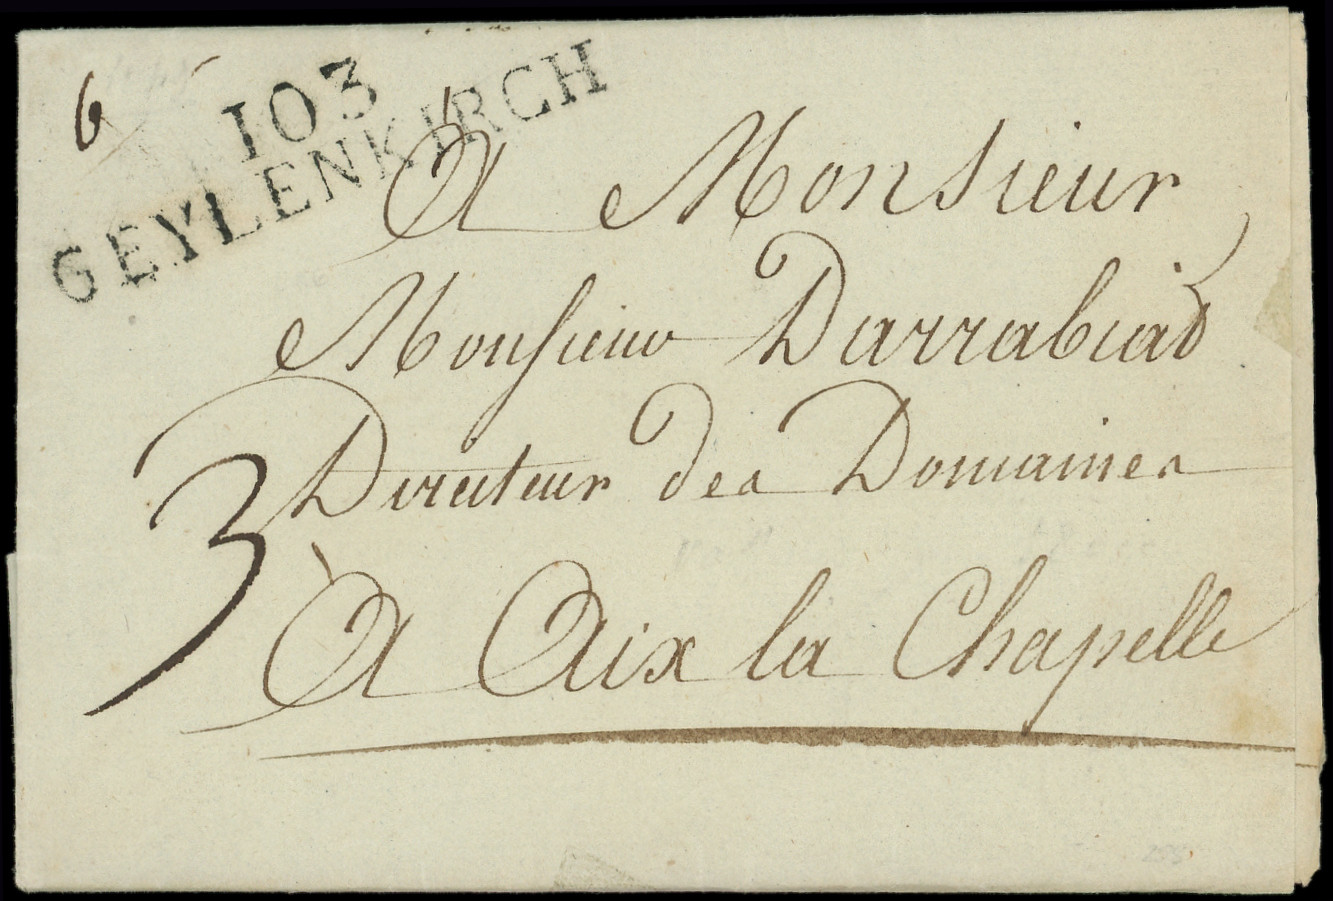 6
103
GEYLENKIRCH
A Monsieur
Monsieur Darrabiad
Directeur des Domaines
3
À Aix la Chapelle